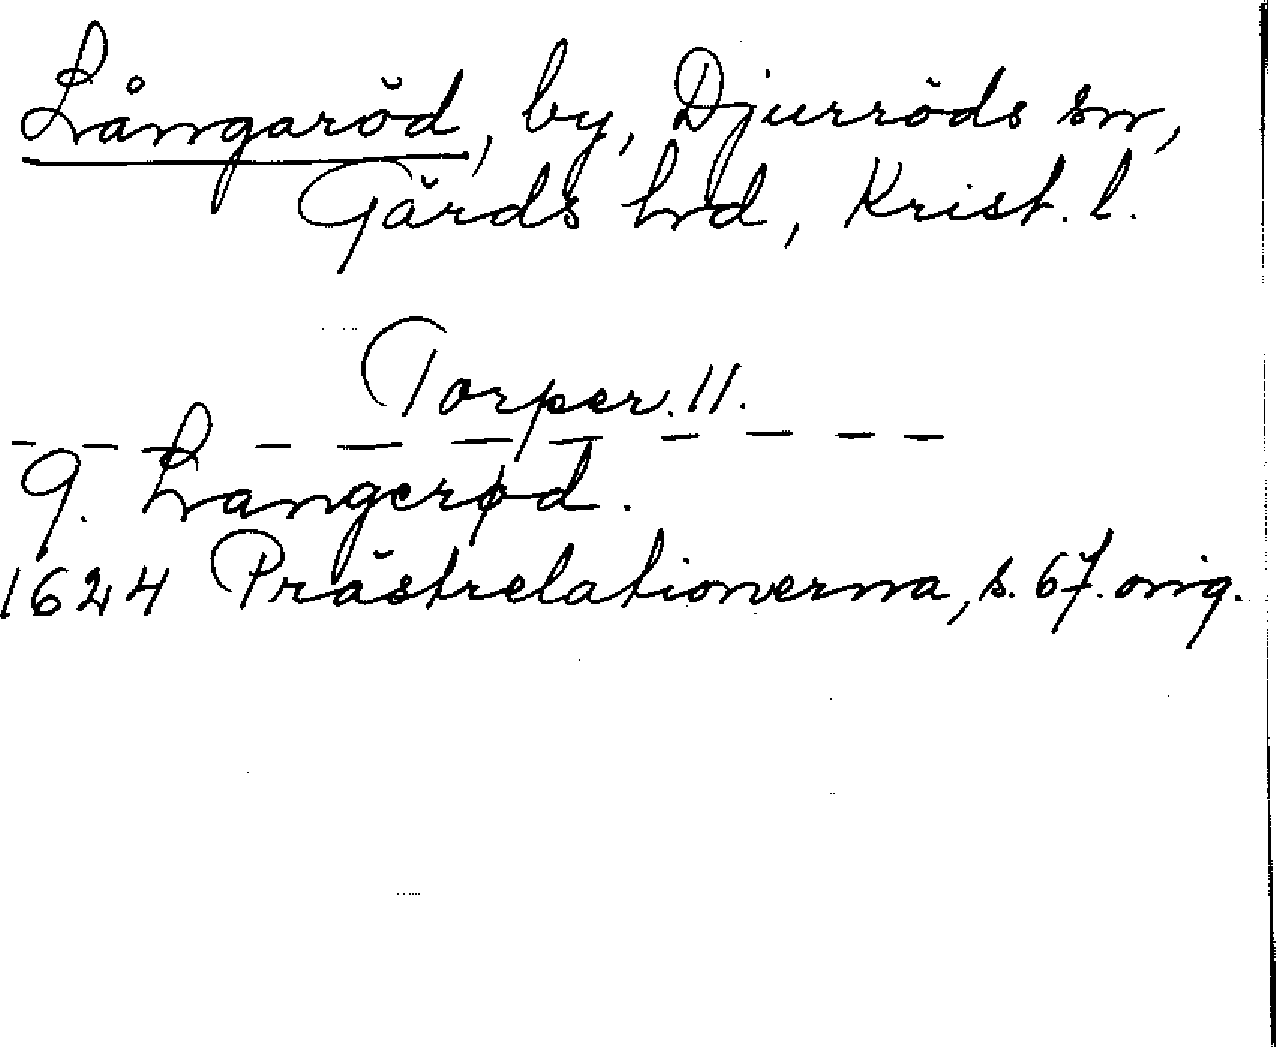 Långaröd, by, Djurröds sn,
Gärds hd, Krist. l.
Torper. 11.
— — — — — — — — — — —
9. Langerød.
1624 Prästrelationerna, s. 67. orig.